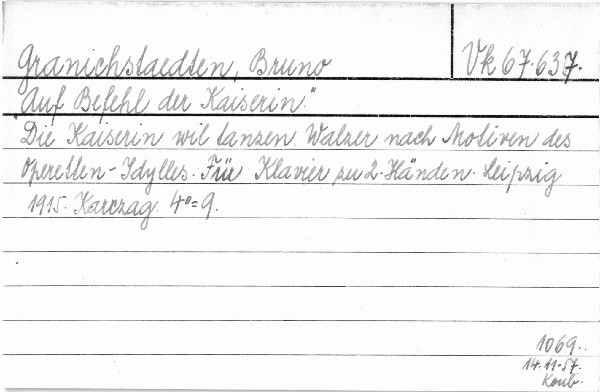 Granichstaedten, Bruno
Vk 67.637.
"Auf Befehl der Kaiserin."
Die Kaiserin wil tanzen. Walzer nach Motiven des
Operetten-Idylles. Für Klavier zu 2. Händen. Leipzig
1915. Karczag. 4°= 9.
1069.
14.11.57.